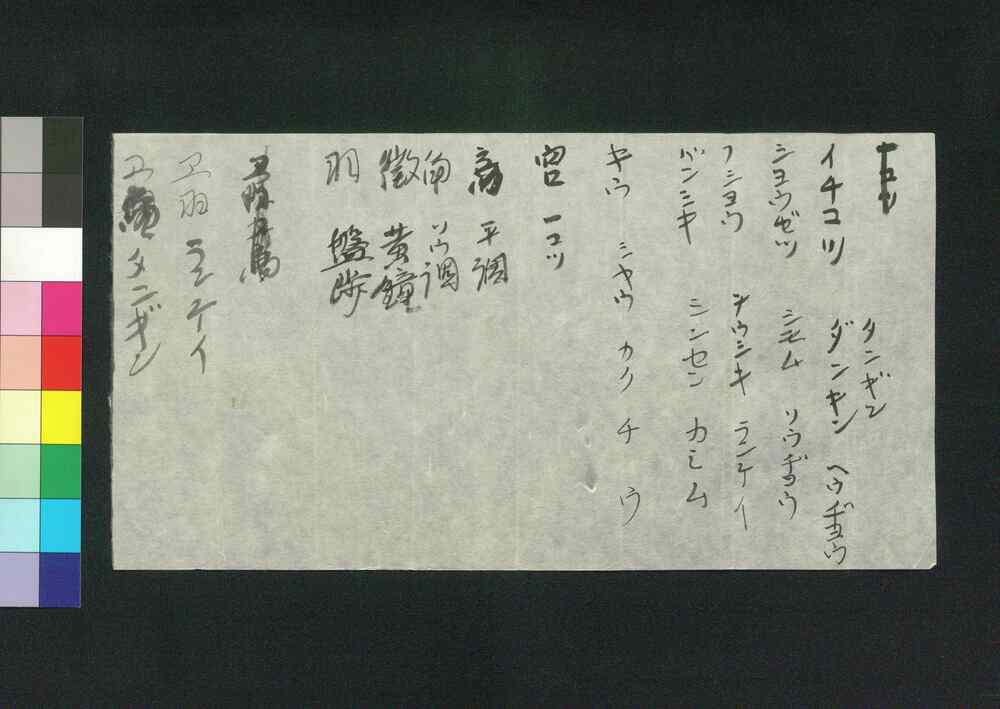 タンギン
イチコツ ダンキン ヘウヂヨウ
シヨウゼツ シモム ソウヂヨウ
フシヨウ ヲウシキ ランケイ
バンシキ シンセン カミム
キウ シヤウ カク チ ウ
宮 一コツ
商 平調
角 ソウ調
徴 黄鐘
羽 盤渉
ヱ羽 ランケイ
ヱ タンギン